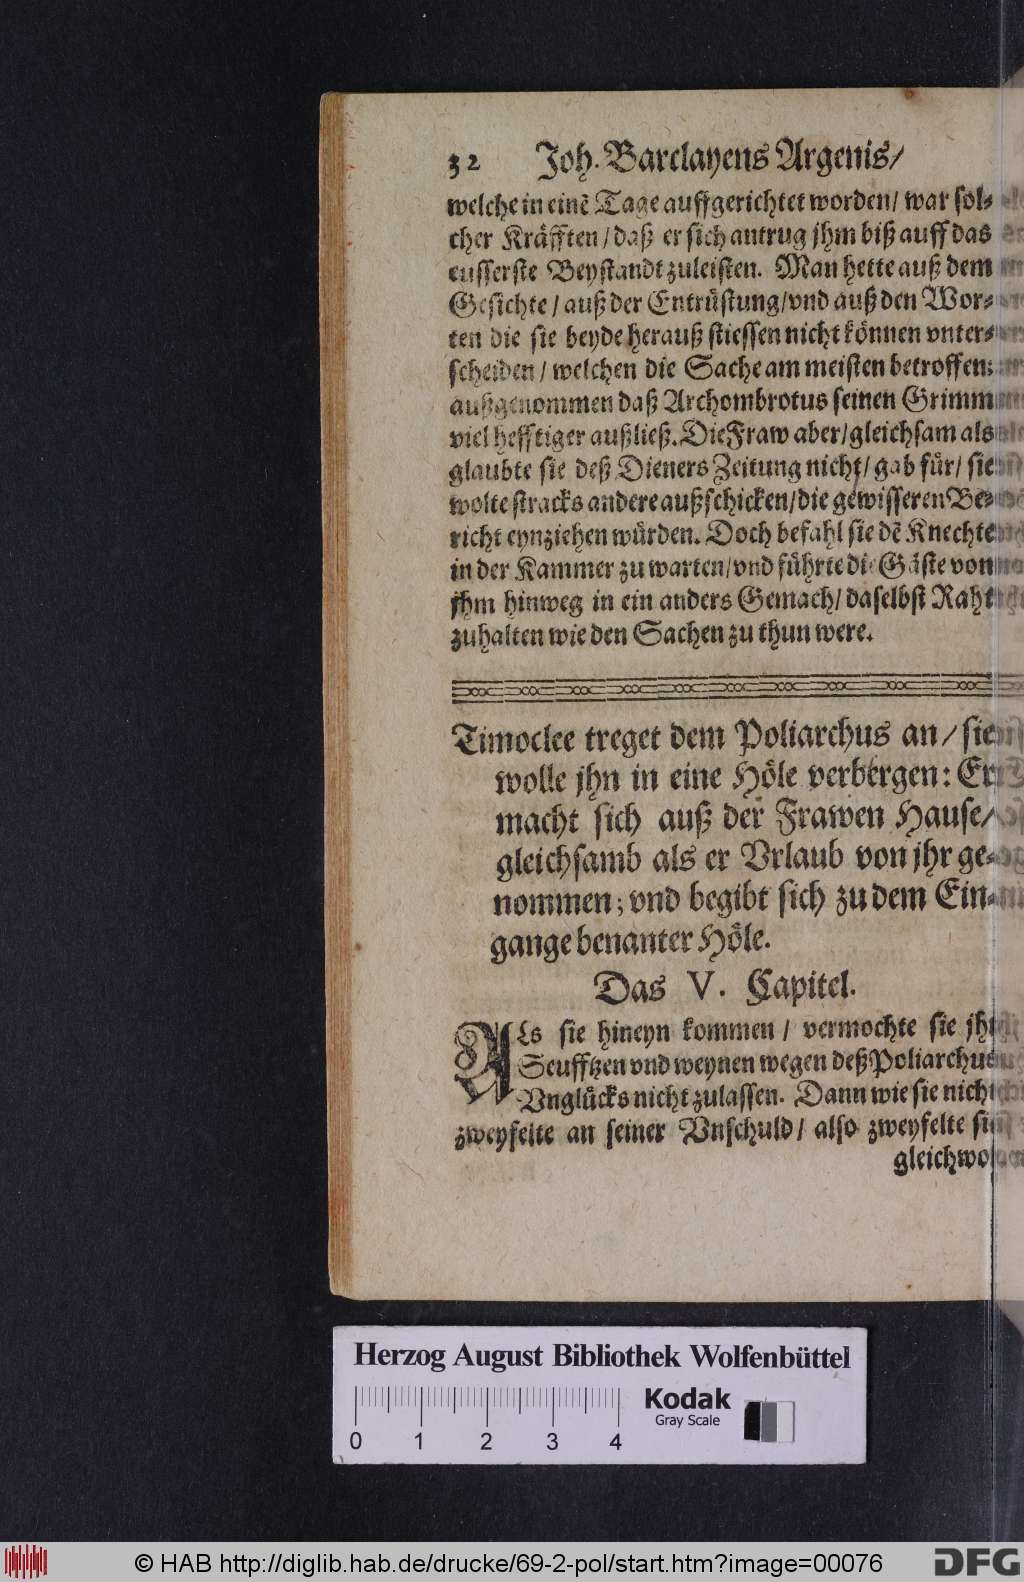 32 Joh. Barclayens Argenis/
welche in einē Tage auffgerichtet worden/ war sol-
cher Kräfften/ daß er sich antrug jhm biß auff das
eusserste Beystandt zuleisten. Man hette auß dem
Gesichte/ auß der Entrüstung/ vnd auß den Wor-
ten die sie beyde herauß stiessen nicht können vnter-
scheiden/ welchen die Sache am meisten betroffen;
außgenommen daß Archombrotus seinen Grimm
viel hefftiger außließ. Die Fraw aber/ gleichsam als
glaubte sie deß Dieners Zeitung nicht/ gab für/ sie
wolte stracks andere außschicken/ die gewisseren Be-
richt eynziehen würden. Doch befahl sie dē Knechte
in der Kammer zu warten/ vnd führte die Gäste von
jhm hinweg in ein anders Gemach/ daselbst Raht
zuhalten wie den Sachen zu thun were.
Timoclee treget dem Poliarchus an/ sie
wolle jhn in eine Höle verbergen: Er
macht sich auß der Frawen Hause/
gleichsamb als er Vrlaub von jhr ge-
nommen; vnd begibt sich zu dem Ein-
gange benanter Höle.
Das V. Capitel.
ALs sie hineyn kommen/ vermochte sie jhr
Seufftzen vnd weynen wegen deß Poliarchus
Vnglücks nicht zulassen. Dann wie sie nicht
zweyfelte an seiner Vnschuld/ also zweyfelte sie
gleichwol
Herzog August Bibliothek Wolfenbüttel
Kodak
Gray Scale
0 1 2 3 4
© HAB http://diglib.hab.de/drucke/69-2-pol/start.htm?image=00076
DFG